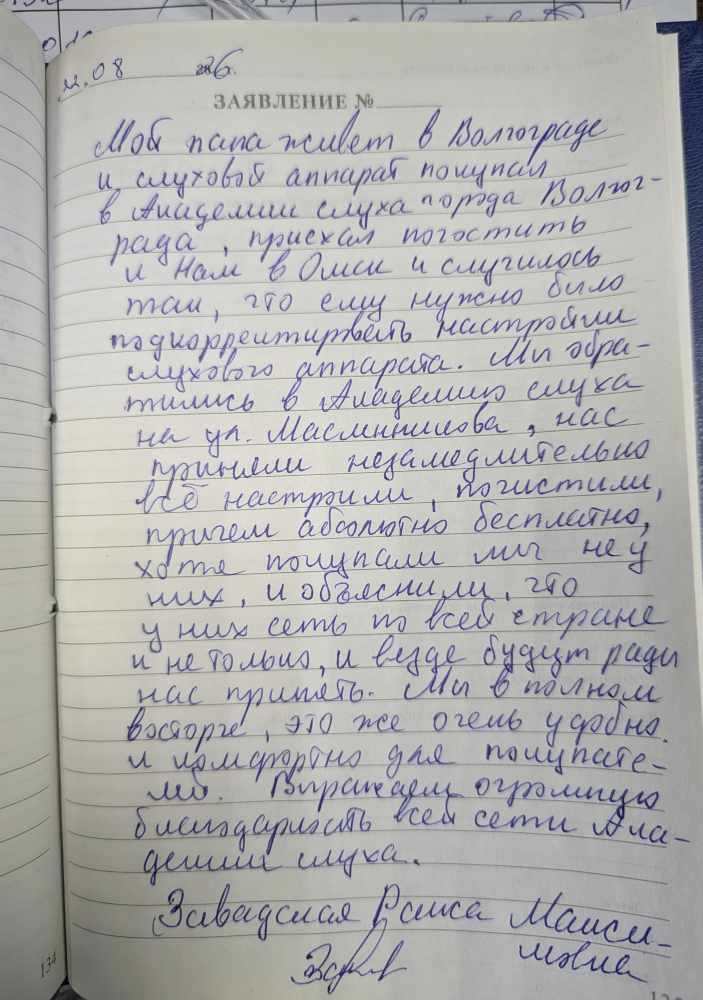 11.08 26.
ЗАЯВЛЕНИЕ №
Мой папа живет в Волгограде
и слуховой аппарат покупал
в Академии слуха города Волгог-
рада, приехал погостить
к нам в Омск и случилось
так, что ему нужно было
подкорректировать настройки
слухового аппарата. Мы обра-
тились в Академию слуха
на ул. Масленникова, нас
приняли незамедлительно
всё настроили, почистили,
причем абсолютно бесплатно,
хотя покупали мы не у
них, и объяснили, что
у них сеть по всей стране
и не только, и везде будут рады
нас принять. Мы в полном
восторге, это же очень удобно
и комфортно для покупате-
лей. Выражаем огромную
благодарность всей сети Ака-
демии слуха.
Завадская Раиса Макси-
мовна
134